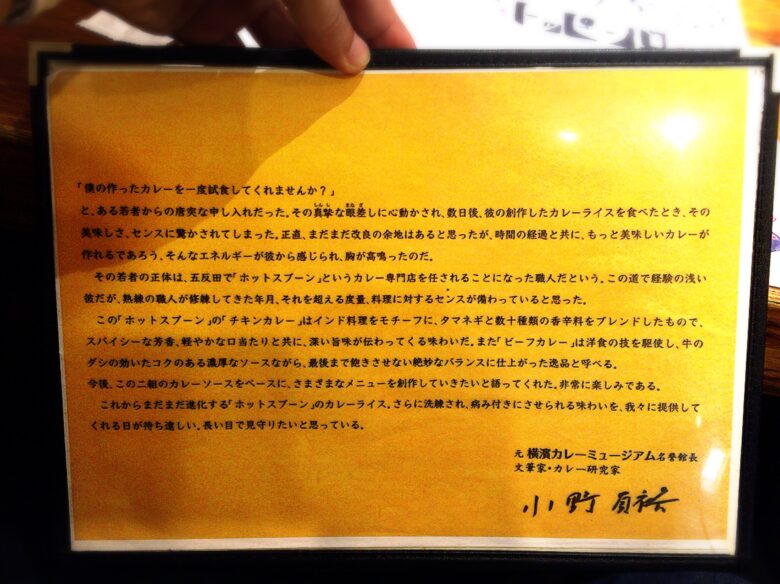 トッピング
「僕の作ったカレーを一度試食してくれませんか？」
と、ある若者からの唐突な申し入れだった。その真摯な眼差しに心動かされ、数日後、彼の創作したカレーライスを食べたとき、その
美味しさ、センスに驚かされてしまった。正直、まだまだ改良の余地はあると思ったが、時間の経過と共に、もっと美味しいカレーが
作れるであろう、そんなエネルギーが彼から感じられ、胸が高鳴ったのだ。
その若者の正体は、五反田で「ホットスプーン」というカレー専門店を任されることになった職人だという。この道で経験の浅い
彼だが、熟練の職人が修練してきた年月、それを超える度量、料理に対するセンスが備わっていると思った。
この「ホットスプーン」の「チキンカレー」はインド料理をモチーフに、タマネギと数十種類の香辛料をブレンドしたもので、
スパイシーな芳香、軽やかな口当たりと共に、深い旨味が伝わってくる味わいだ。また「ビーフカレー」は洋食の技を駆使し、牛の
ダシの効いたコクのある濃厚なソースながら、最後まで飽きさせない絶妙なバランスに仕上がった逸品と呼べる。
今後、この二組のカレーソースをベースに、さまざまなメニューを創作していきたいと語ってくれた。非常に楽しみである。
これからまだまだ進化する「ホットスプーン」のカレーライス。さらに洗練され、病み付きにさせられる味わいを、我々に提供して
くれる日が待ち遠しい。長い目で見守りたいと思っている。
元 横濱カレーミュージアム名誉館長
文筆家・カレー研究家
小野員裕